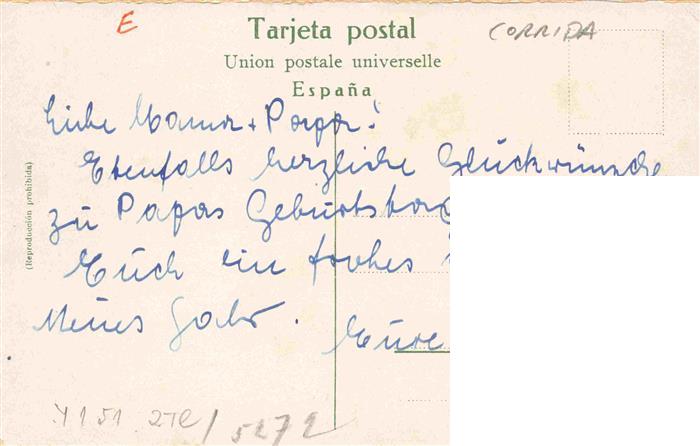 E
CORRIDA
Tarjeta postal
Union postale universelle
España
(Reproducción prohibida)
Liebe Mama + Papa!
Ebenfalls herzliche Glückwünsche
zu Papas Geburtstag
Euch ein frohes
Neues Jahr.
Eure
5272